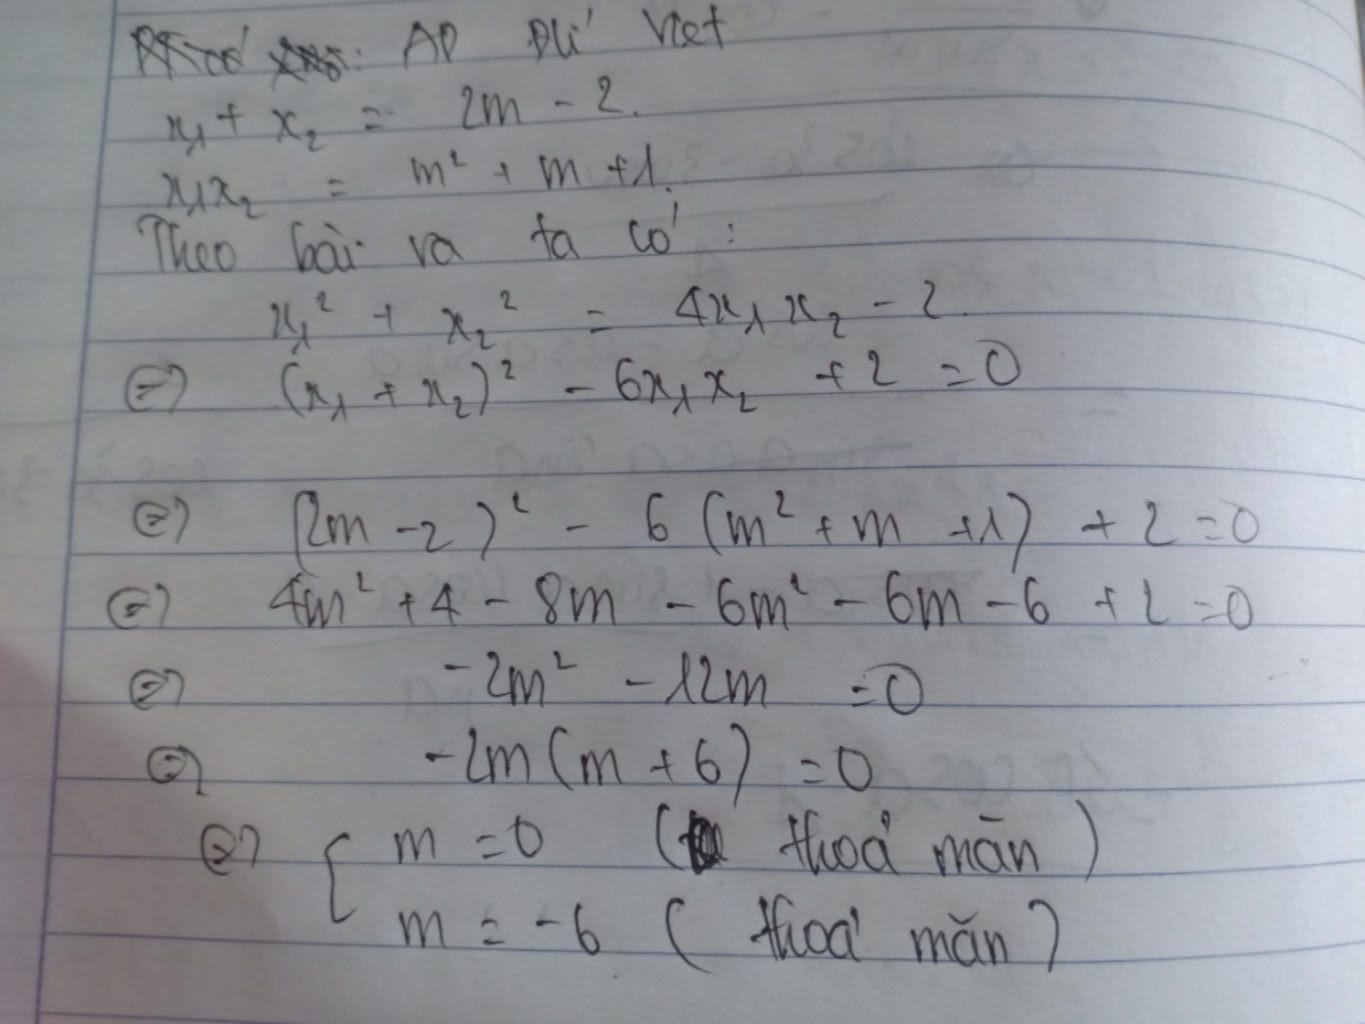 : AD Đlí Viet
x₁ + x₂ = 2m - 2.
x₁x₂ = m² + m + 1.
Theo bài ra ta có :
x₁² + x₂² = 4x₁x₂ - 2.
⇔ (x₁ + x₂)² - 6x₁x₂ + 2 = 0
⇔ (2m - 2)² - 6(m² + m + 1) + 2 = 0
⇔ 4m² + 4 - 8m - 6m² - 6m - 6 + 2 = 0
⇔ -2m² - 12m = 0
⇔ -2m(m + 6) = 0
⇔ [ m = 0 ( thoả mãn )
m = -6 ( thoả mãn )